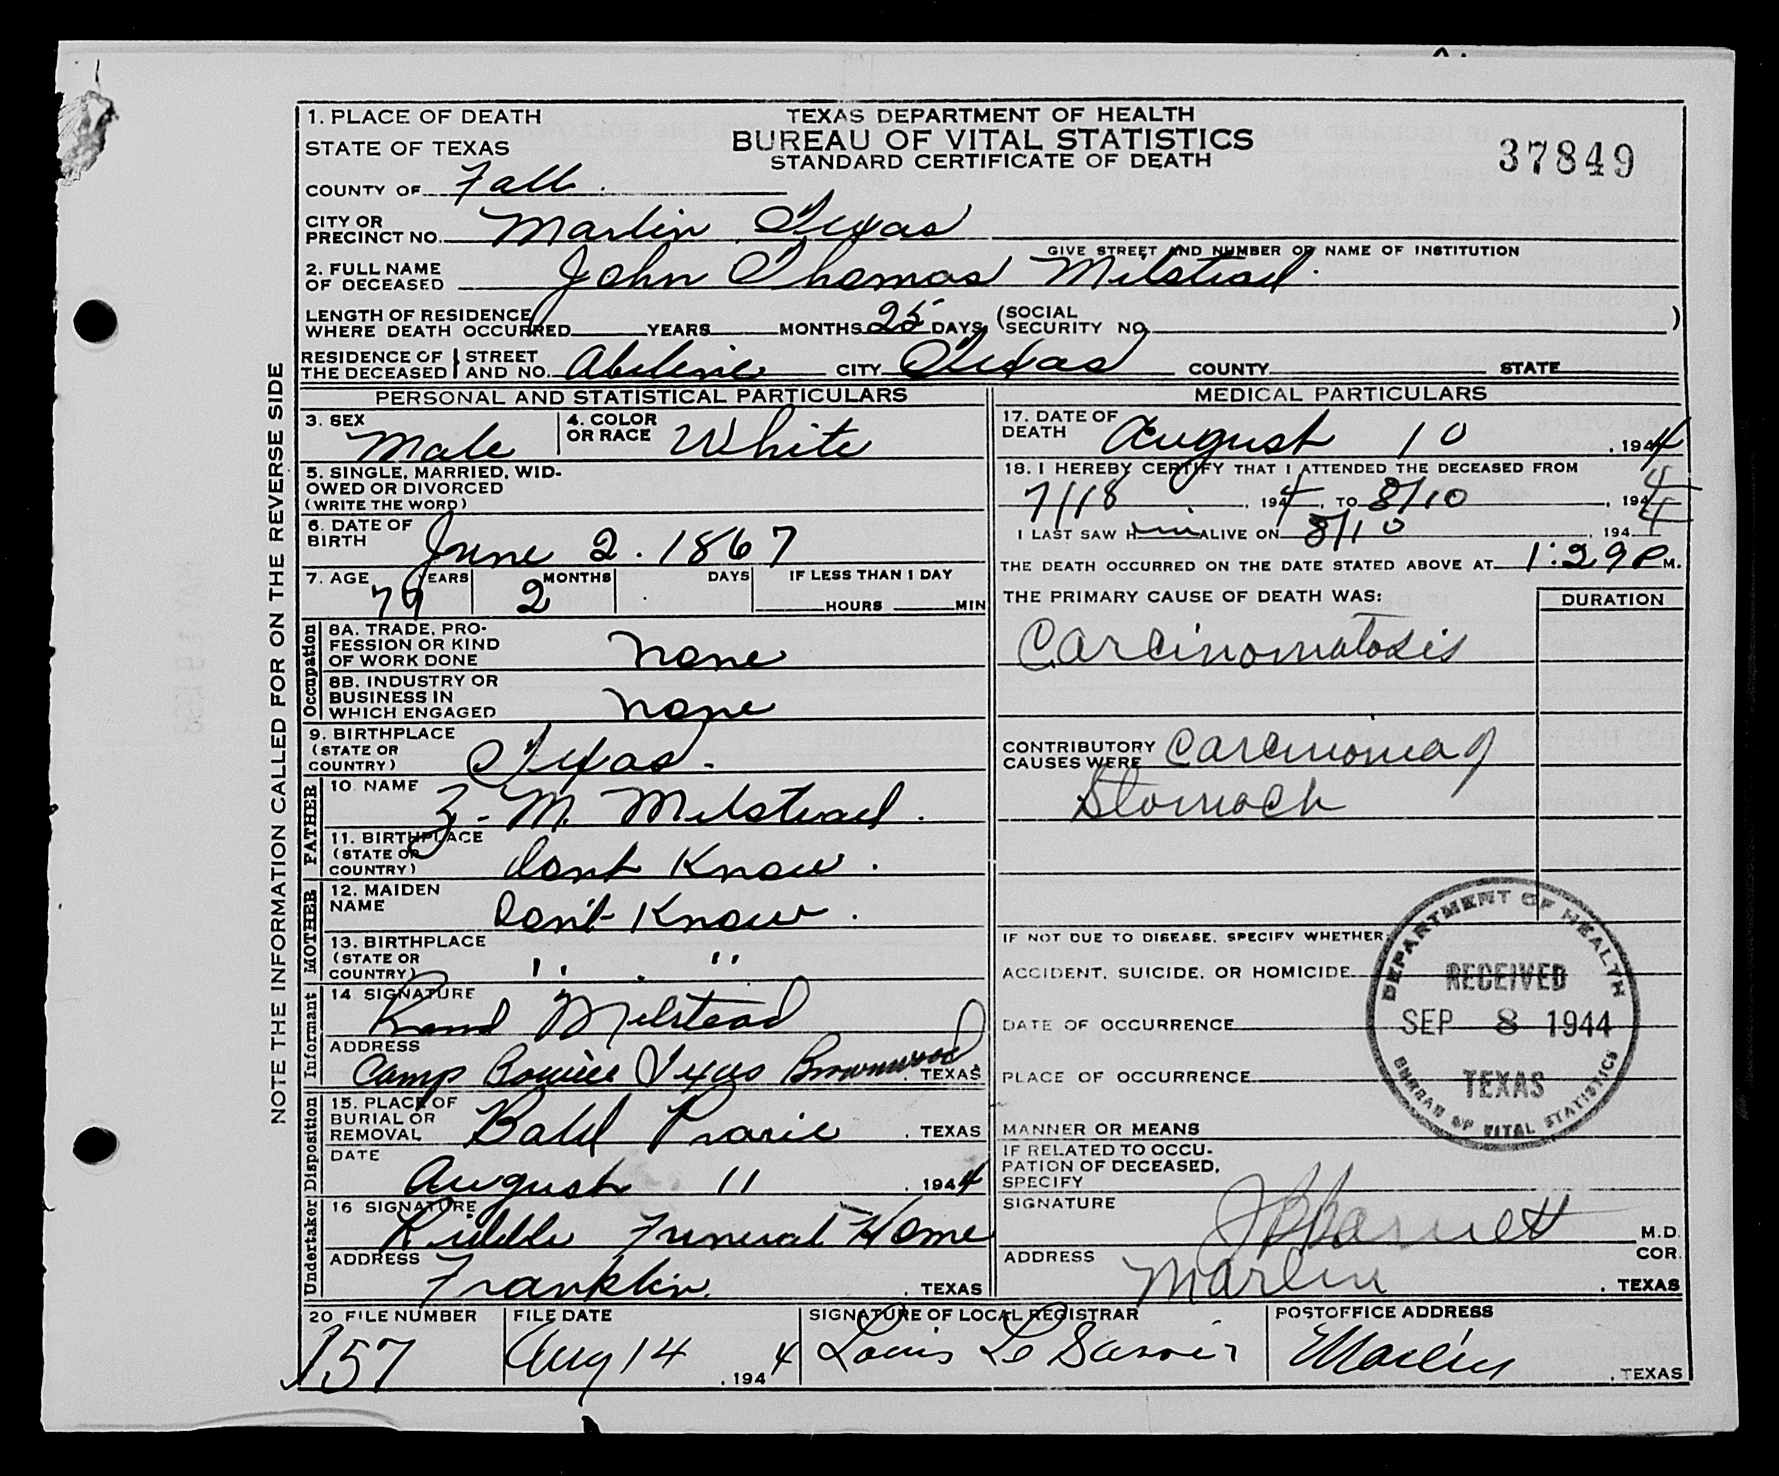 NOTE THE INFORMATION CALLED FOR ON THE REVERSE SIDE
TEXAS DEPARTMENT OF HEALTH
BUREAU OF VITAL STATISTICS
STANDARD CERTIFICATE OF DEATH
37849
1. PLACE OF DEATH
STATE OF TEXAS
COUNTY OF Falls.
CITY OR PRECINCT NO. Marlin Texas
GIVE STREET AND NUMBER OR NAME OF INSTITUTION
2. FULL NAME OF DECEASED John Thomas Milstead.
LENGTH OF RESIDENCE WHERE DEATH OCCURRED YEARS MONTHS 25 DAYS (SOCIAL SECURITY NO. )
RESIDENCE OF THE DECEASED STREET AND NO. Abilene CITY Texas COUNTY STATE
PERSONAL AND STATISTICAL PARTICULARS
3. SEX Male 4. COLOR OR RACE White
5. SINGLE, MARRIED, WIDOWED OR DIVORCED
(WRITE THE WORD)
6. DATE OF BIRTH June 2. 1867
7. AGE YEARS 79 MONTHS 2 DAYS IF LESS THAN 1 DAY HOURS MIN
Occupation
8A. TRADE, PROFESSION OR KIND OF WORK DONE none
8B. INDUSTRY OR BUSINESS IN WHICH ENGAGED none
9. BIRTHPLACE (STATE OR COUNTRY) Texas.
FATHER
10. NAME Z. M. Milstead.
11. BIRTHPLACE (STATE OR COUNTRY) dont Know.
MOTHER
12. MAIDEN NAME Don't Know.
13. BIRTHPLACE (STATE OR COUNTRY) " "
Informant
14. SIGNATURE Rand Milstead
ADDRESS Camp Bowie Texas Brownwood, TEXAS
Disposition
15. PLACE OF BURIAL OR REMOVAL Bald Prarie, TEXAS
DATE August 11, 1944
Undertaker
16 SIGNATURE Riddle Funeral Home
ADDRESS Franklin, TEXAS
MEDICAL PARTICULARS
17. DATE OF DEATH August 10, 1944
18. I HEREBY CERTIFY THAT I ATTENDED THE DECEASED FROM
7/18, 1944, TO 8/10, 1944
I LAST SAW Him ALIVE ON 8/10, 1944
THE DEATH OCCURRED ON THE DATE STATED ABOVE AT 1:29 P M.
THE PRIMARY CAUSE OF DEATH WAS: DURATION
Carcinomatosis
CONTRIBUTORY CAUSES WERE Carcinoma of
Stomach
IF NOT DUE TO DISEASE, SPECIFY WHETHER
ACCIDENT, SUICIDE, OR HOMICIDE
DATE OF OCCURRENCE
PLACE OF OCCURRENCE
MANNER OR MEANS
IF RELATED TO OCCUPATION OF DECEASED, SPECIFY
DEPARTMENT OF HEALTH
RECEIVED
SEP 8 1944
TEXAS
BUREAU OF VITAL STATISTICS
SIGNATURE Barnett M.D.
COR.
ADDRESS Marlin, TEXAS
20 FILE NUMBER 157
FILE DATE Aug 14, 1944
SIGNATURE OF LOCAL REGISTRAR Louis
POSTOFFICE ADDRESS Marlin, TEXAS